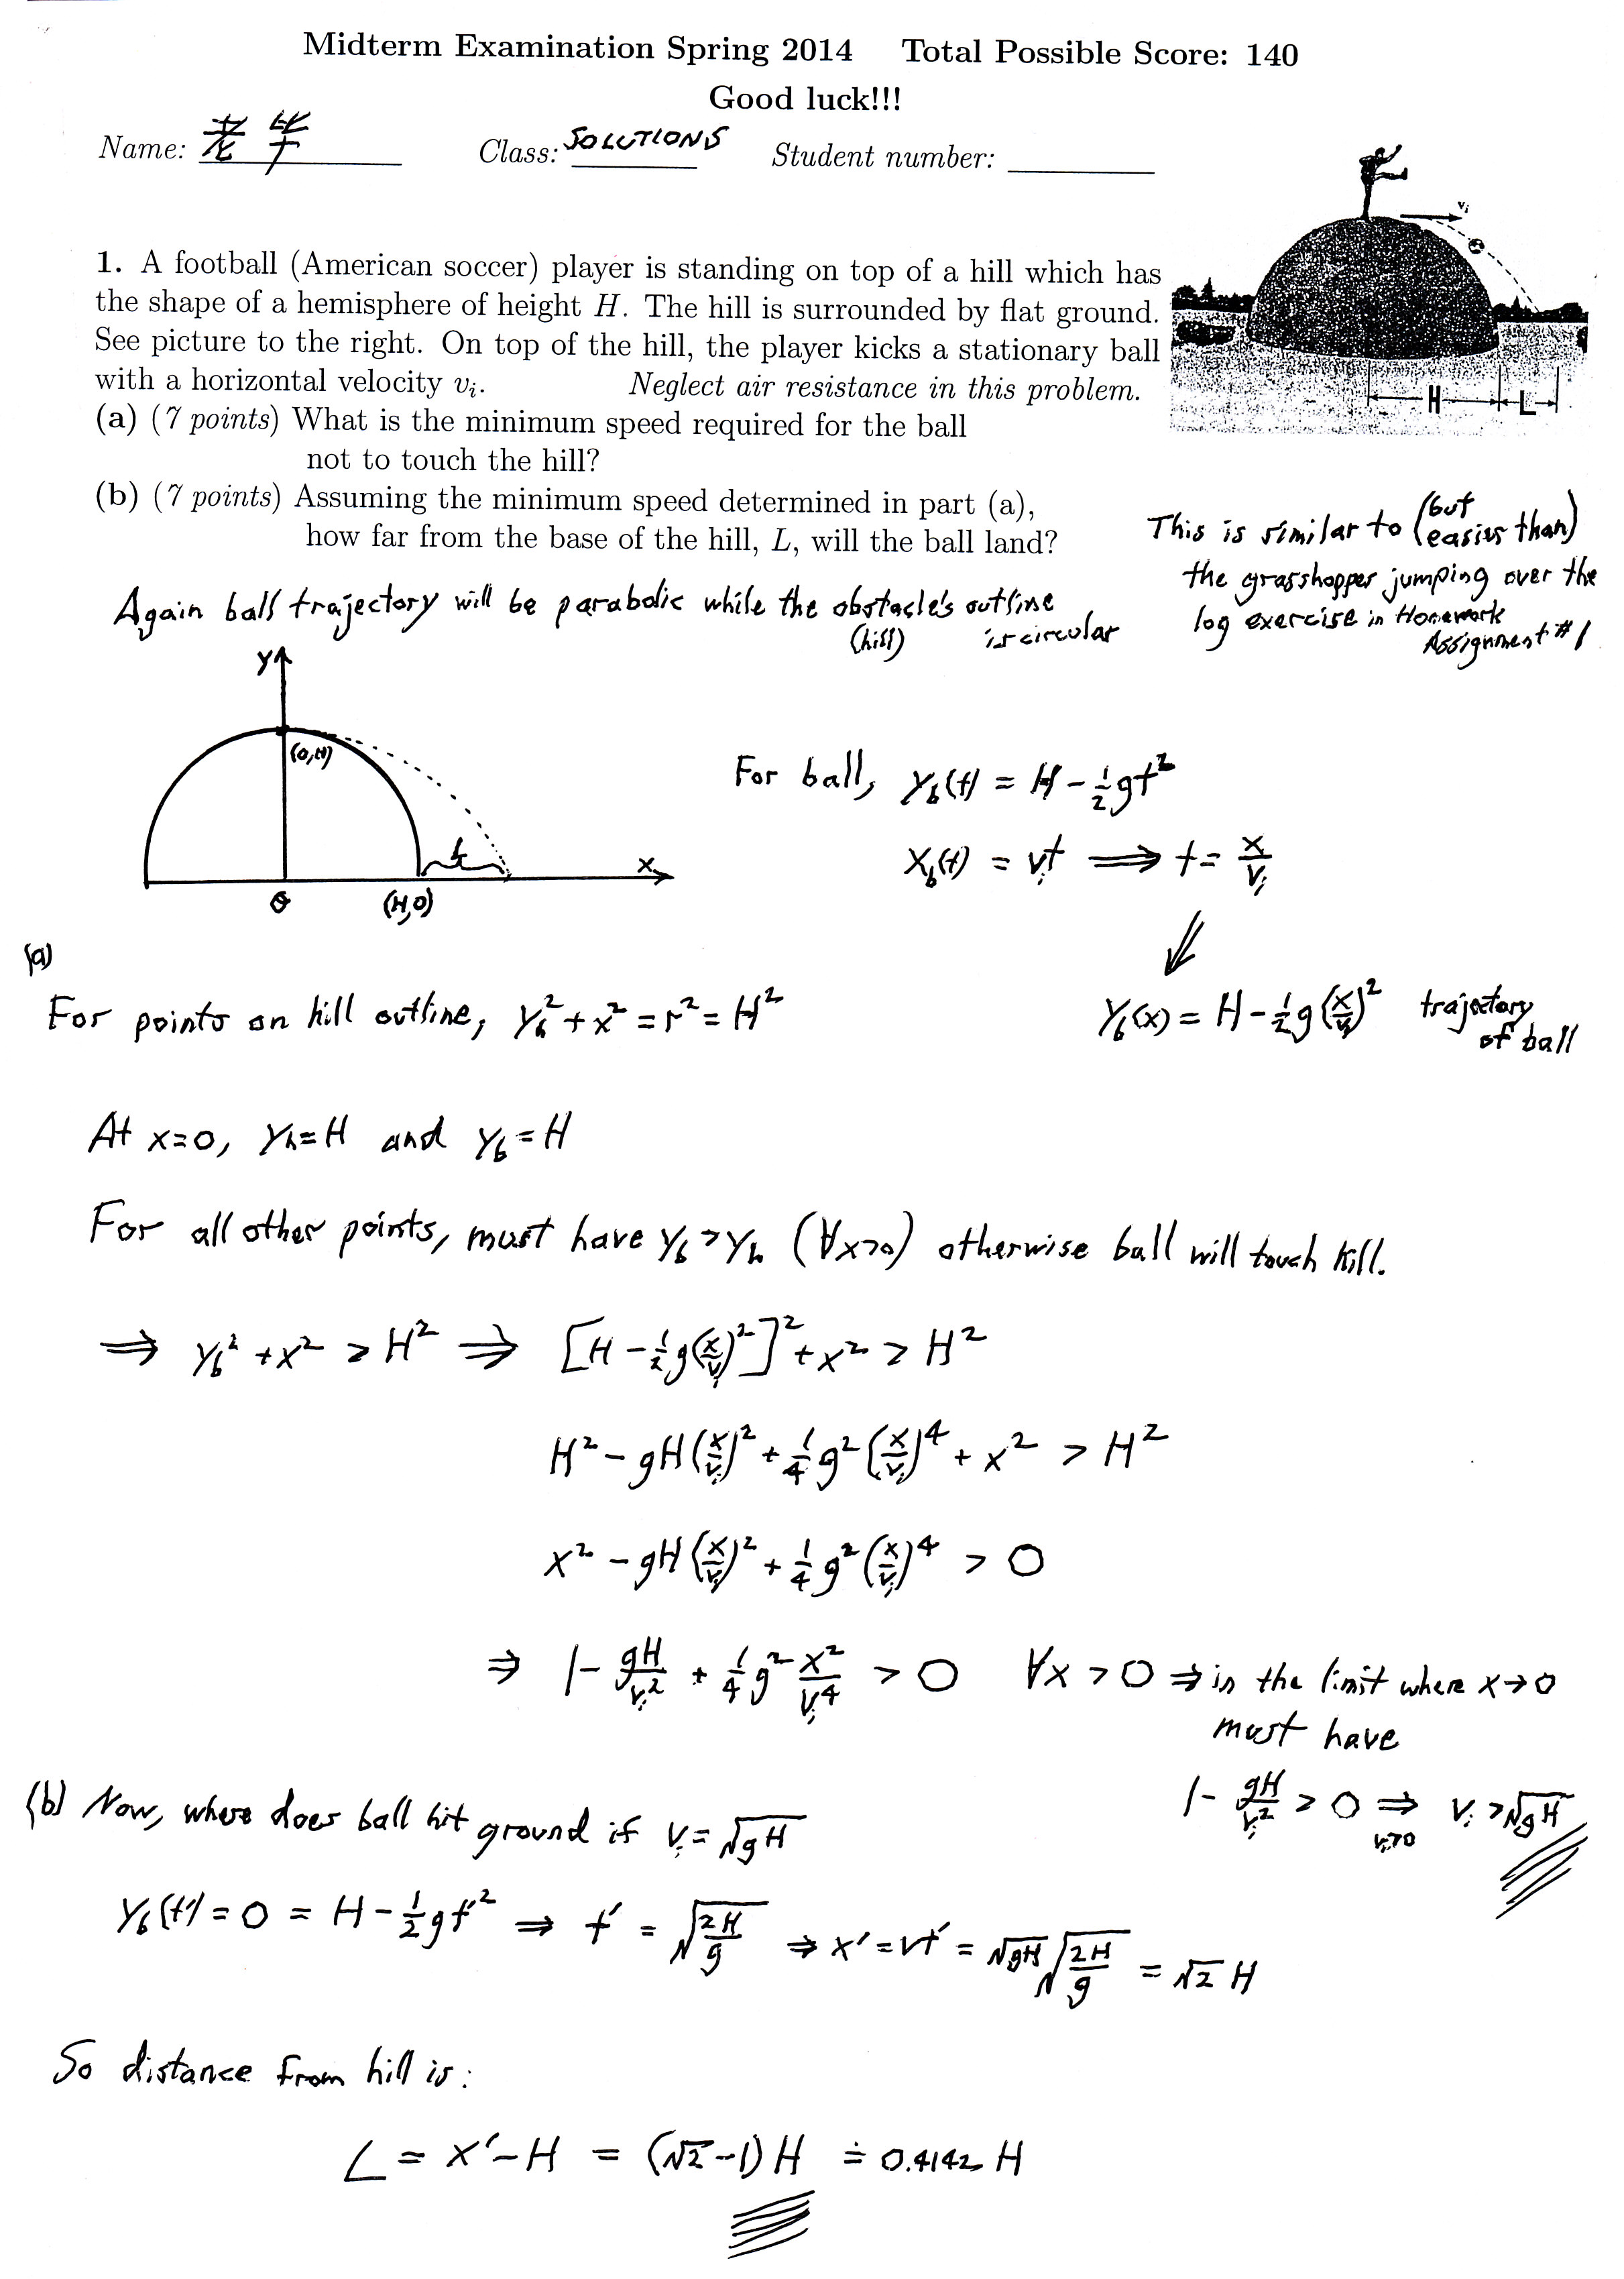 Midterm Examination Spring 2014 Total Possible Score: 140
Good luck!!!
Name: 老毕 Class: SOLUTIONS Student number:
v_i
1. A football (American soccer) player is standing on top of a hill which has
the shape of a hemisphere of height H. The hill is surrounded by flat ground.
See picture to the right. On top of the hill, the player kicks a stationary ball
with a horizontal velocity v_i. Neglect air resistance in this problem.
H L
(a) (7 points) What is the minimum speed required for the ball
not to touch the hill?
(b) (7 points) Assuming the minimum speed determined in part (a),
how far from the base of the hill, L, will the ball land?
This is similar to (but easier than)
the grasshopper jumping over the
log exercise in Homework
Assignment #1
Again ball trajectory will be parabolic while the obstacle's outline
(hill) is circular
Y
(0,H)
L
X
O (H,0)
For ball, Y_b(t) = H - 1/2 gt²
X_b(t) = v_i t ⟹ t = x/v_i
⇓
Y_b(x) = H - 1/2 g(x/v_i)² trajectory
of ball
(a)
For points on hill outline, Y_h² + x² = r² = H²
At x=0, Y_h=H and Y_b=H
For all other points, must have Y_b > Y_h (∀x>0) otherwise ball will touch hill.
⟹ Y_b² + x² > H² ⟹ [H - 1/2 g(x/v_i)²]² + x² > H²
H² - gH(x/v_i)² + 1/4 g²(x/v_i)⁴ + x² > H²
x² - gH(x/v_i)² + 1/4 g²(x/v_i)⁴ > 0
⇒ 1 - gH/v_i² + 1/4 g² x²/v_i⁴ > 0 ∀x > 0 ⇒ in the limit where x→0
must have
1 - gH/v_i² > 0 ⟹ v_i > √gH
v_i>0
(b) Now, where does ball hit ground if v_i = √gH
Y_b(t') = 0 = H - 1/2 gt'² ⟹ t' = √(2H/g) ⇒ x' = vt' = √gH √(2H/g) = √2 H
So distance from hill is:
L = x' - H = (√2-1) H ≐ 0.4142 H